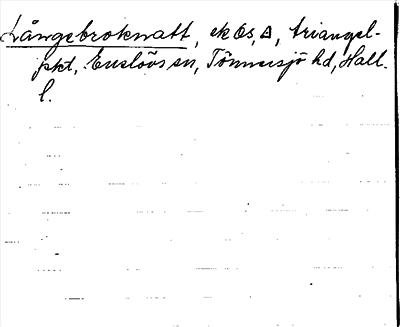 Långebroknatt, ek 6s, △, triangel-
pkt, Enslövs sn, Tönnersjö hd, Hall.
l.